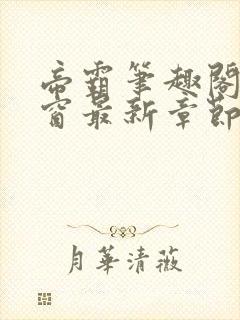 帝霸筆趣閣
窗最新章節
月華清薇